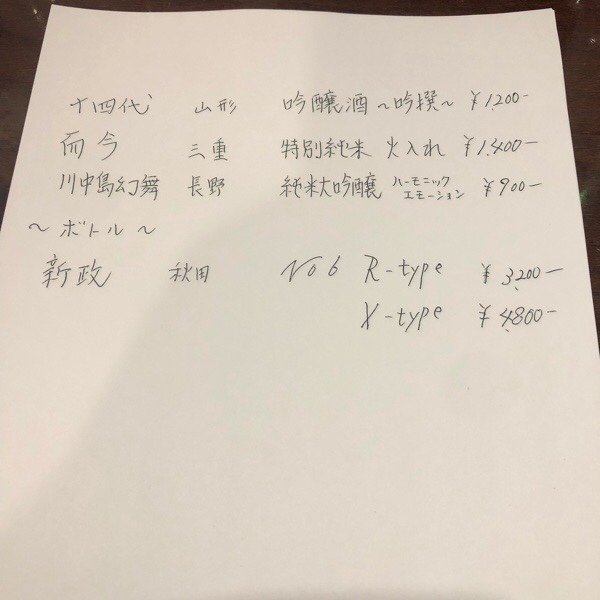 十四代 山形 吟醸酒 ~吟撰~ ¥1,200-
而今 三重 特別純米 火入れ ¥1,400-
川中島幻舞 長野 純米大吟醸 ハーモニックエモーション ¥900-
~ボトル~
新政 秋田 No6 R-type ¥3,200-
X-type ¥4,800-